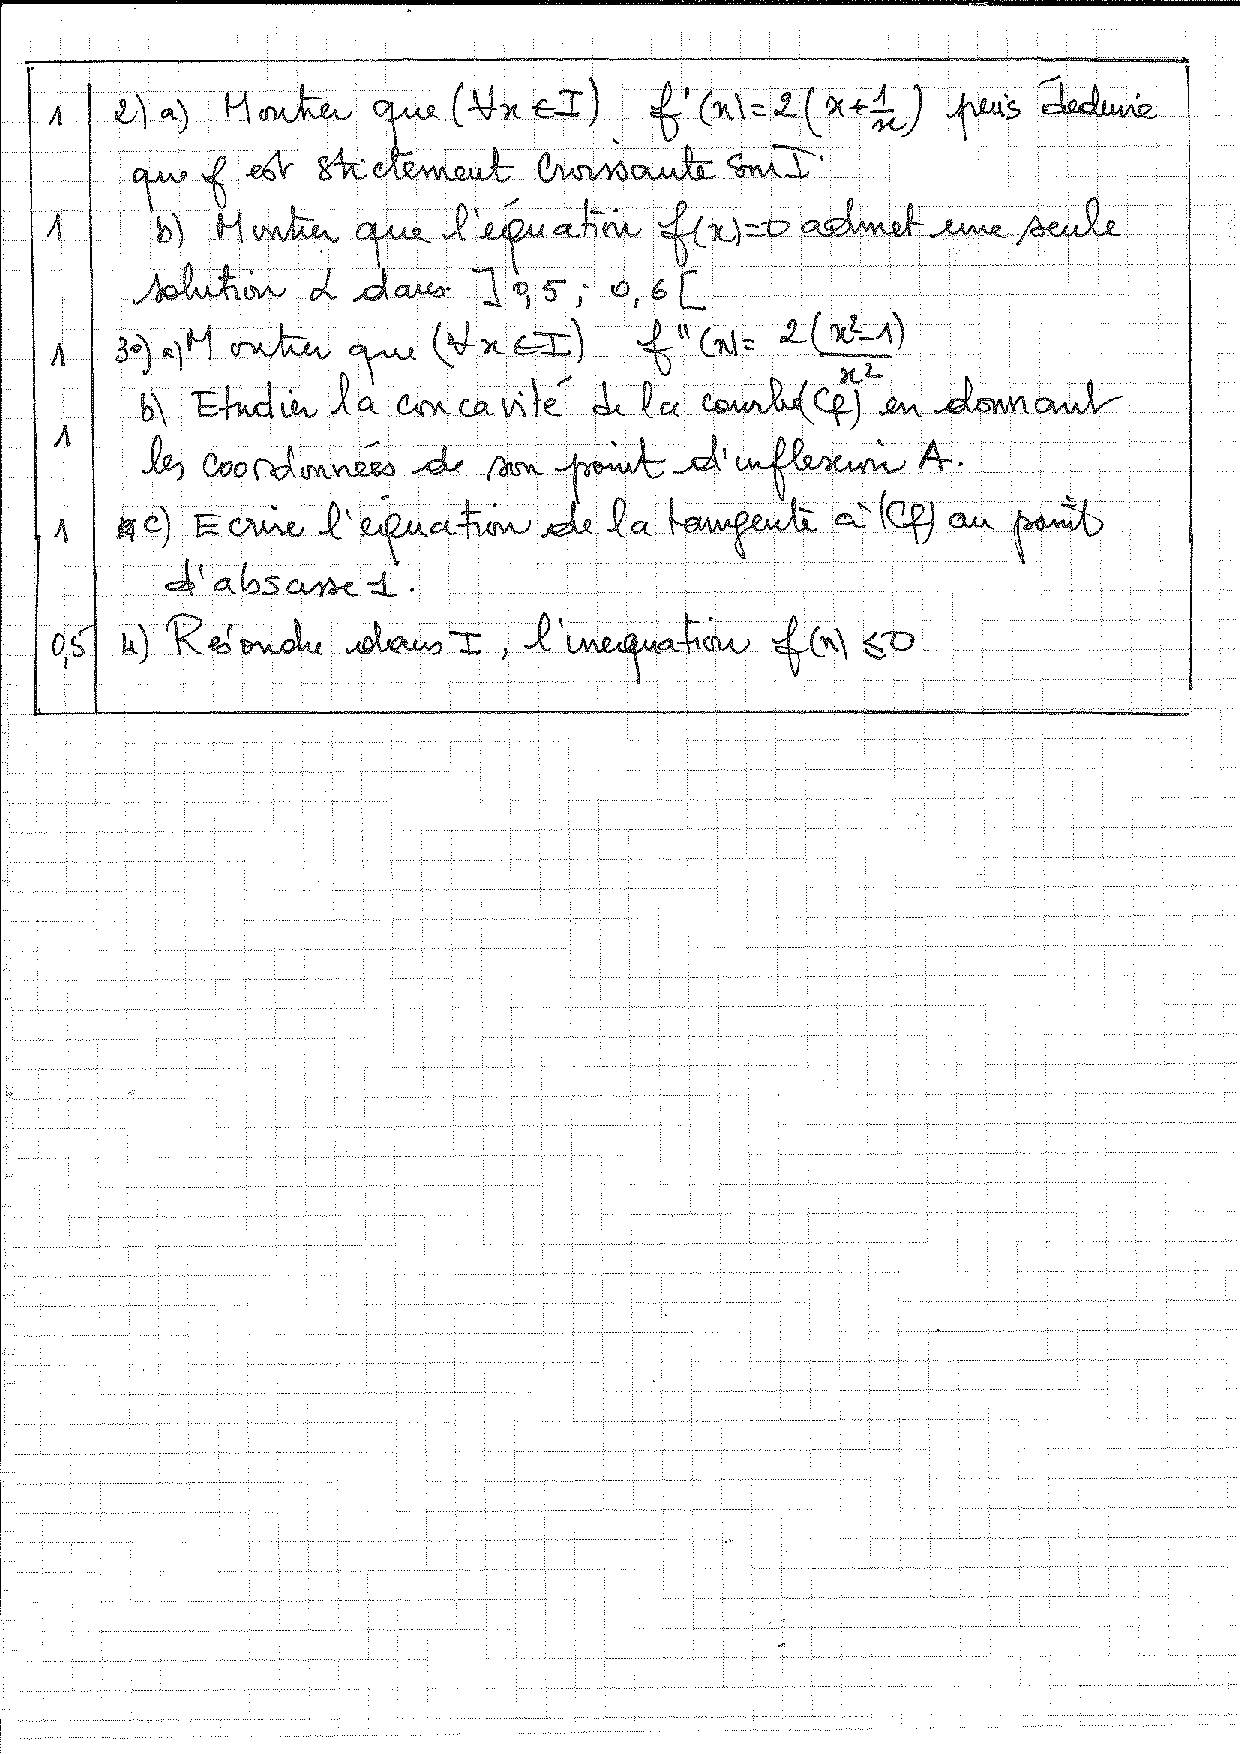 1 2) a) Montrer que (∀x∈I) f'(x)=2(x+1/x) puis déduire
que f est strictement croissante sur I.
1 b) Montrer que l'équation f(x)=0 admet une seule
solution α dans ]0,5 ; 0,6[
1 3°) a) Montrer que (∀x∈I) f''(x)= 2(x²-1)/x²
1 b) Etudier la concavité de la courbe (Cf) en donnant
les coordonnées de son point d'inflexion A.
1 c) Ecrire l'équation de la tangente à (Cf) au point
d'abscisse 1.
0,5 4) Résoudre dans I, l'inéquation f(x) ≤0